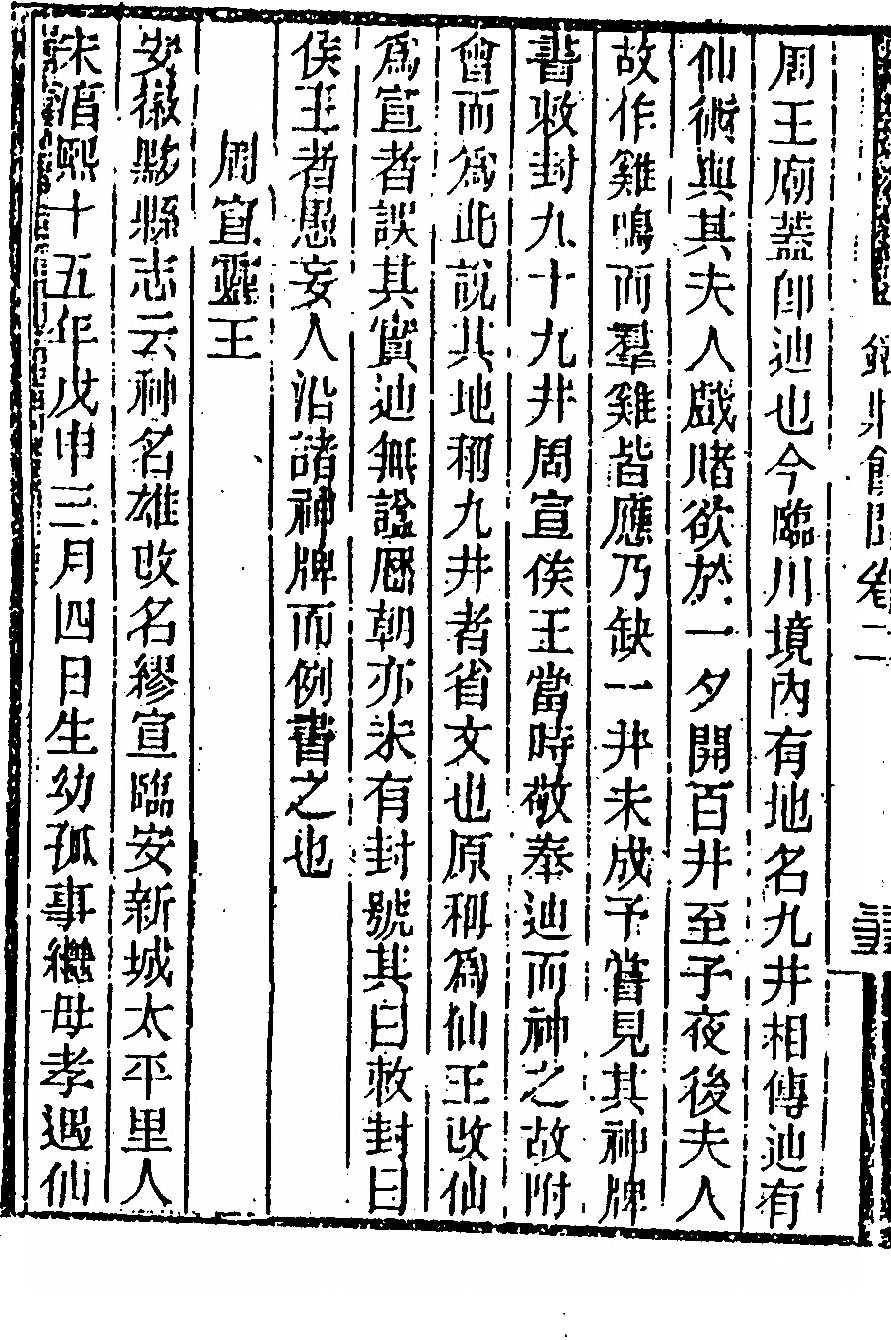 周王廟蓋卽迪也今臨川境內有地名九井相傳迪有
仙術與其夫人戲賭欲於一夕開百井至子夜後夫人
故作雞鳴而羣雞皆應乃缺一井未成予嘗見其神牌
書敕封九十九井周宣侯王當時敬奉迪而神之故附
會而爲此說其地稱九井者省文也原稱爲仙王改仙
爲宣者誤其實迪無諡歷朝亦未有封號其曰敕封曰
侯王者愚妄人沿諸神牌而例書之也
周宣靈王
安徽黟縣志云神名雄改名繆宣臨安新城太平里人
宋淳熙十五年戊申三月四日生幼孤事繼母孝遇仙
卷二